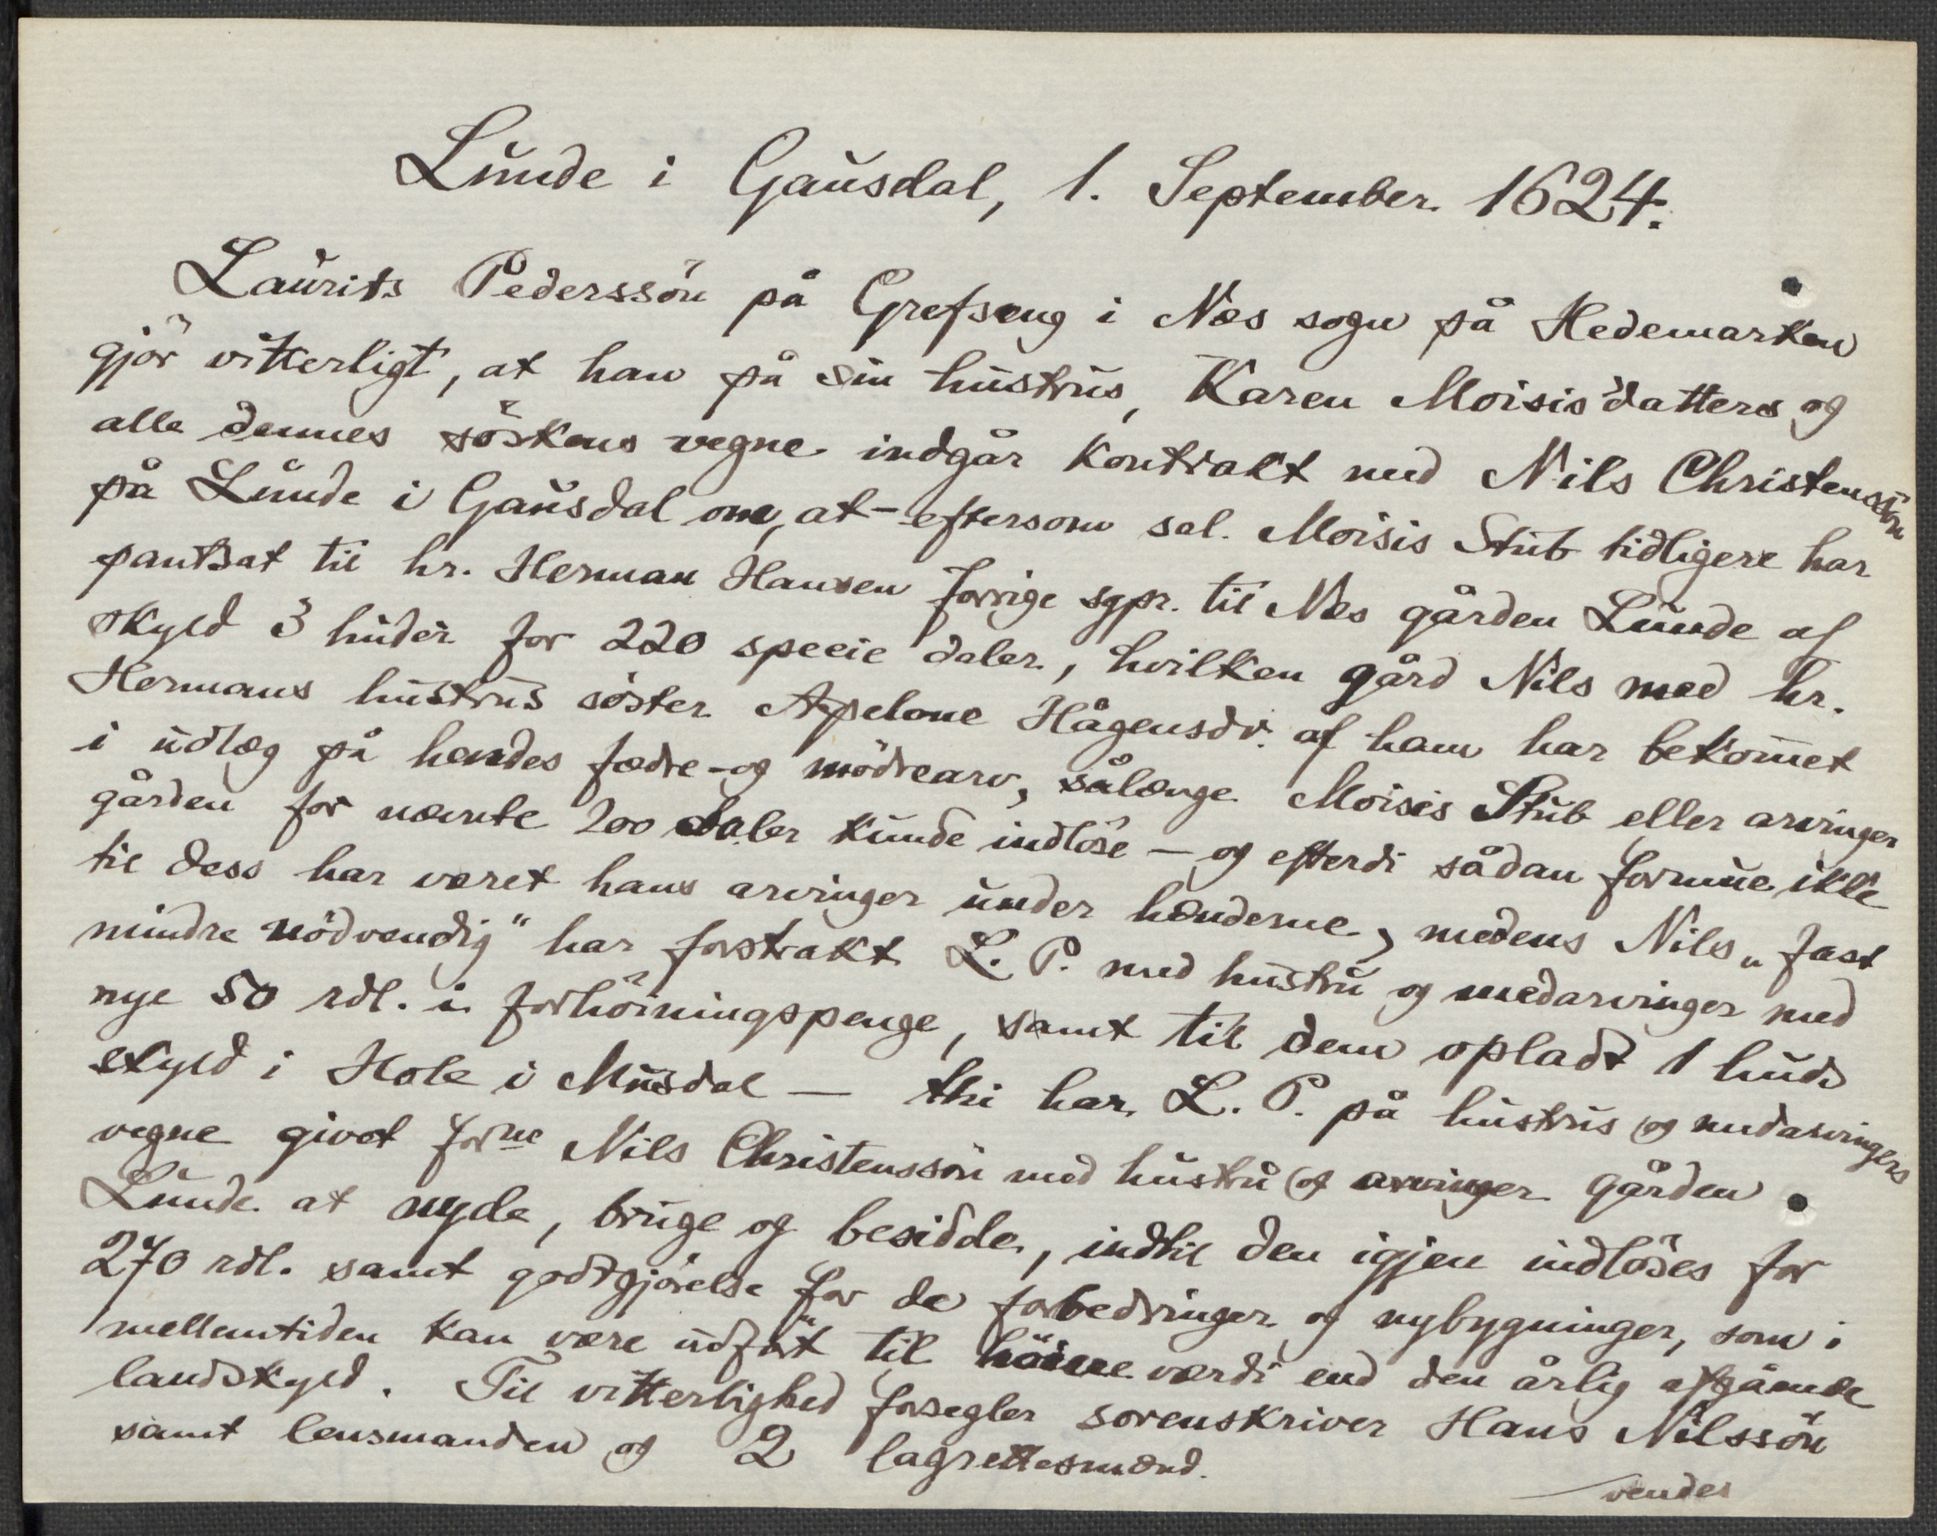 Lunde i Gausdal, 1. September 1624.
Laurits Pederssön på Grefseng i Næs sogn på Hedemarken
gjör vitterligt, at han på sin hustrus, Karen Moisisdatters og
alle dennes söskens vegne indgår kontrakt med Nils Christenssön
på Lunde i Gausdal om, at – eftersom sal. Moisis Stub tidligere har
pantsat til hr. Herman Hansen forrige sgpr. til Næs gården Lunde af
skyld 3 huder for 220 specie daler, hvilken gård Nils med hr.
Hermans hustrus söster Apelone Hågensdr. af ham har bekom̅et
i udlæg på hendes fædre- og mödrearv, sålænge Moisis Stub eller arvinger
gården for nævnte 200 daler kunde indlöse – og efterdi sådan formue ikke
til dess har været hans arvinger under hænderne, medens Nils „fast
mindre nödvendig" har forstrakt L. P. med hustru og medarvinger med
nye 50 rdl. i forhöiningspenge, samt til dem opladt 1 huds
skyld i Hole i Musdal — thi har L. P. på hustrus og medarvingers
vegne givet forne Nils Christenssön med hustru og arvinger gården
Lunde at nyde, bruge og besidde, indtil den igjen indlöses for
270 rdl. samt godtgjörelse for de forbedringer og nybygninger, som i
mellemtiden kan være udfört til höiere værdi end den årlig afgående
landskyld. Til vitterlighed forsegler sorenskriver Hans Nilssön
samt lensmanden og 2 lagrettesmænd.
vendes